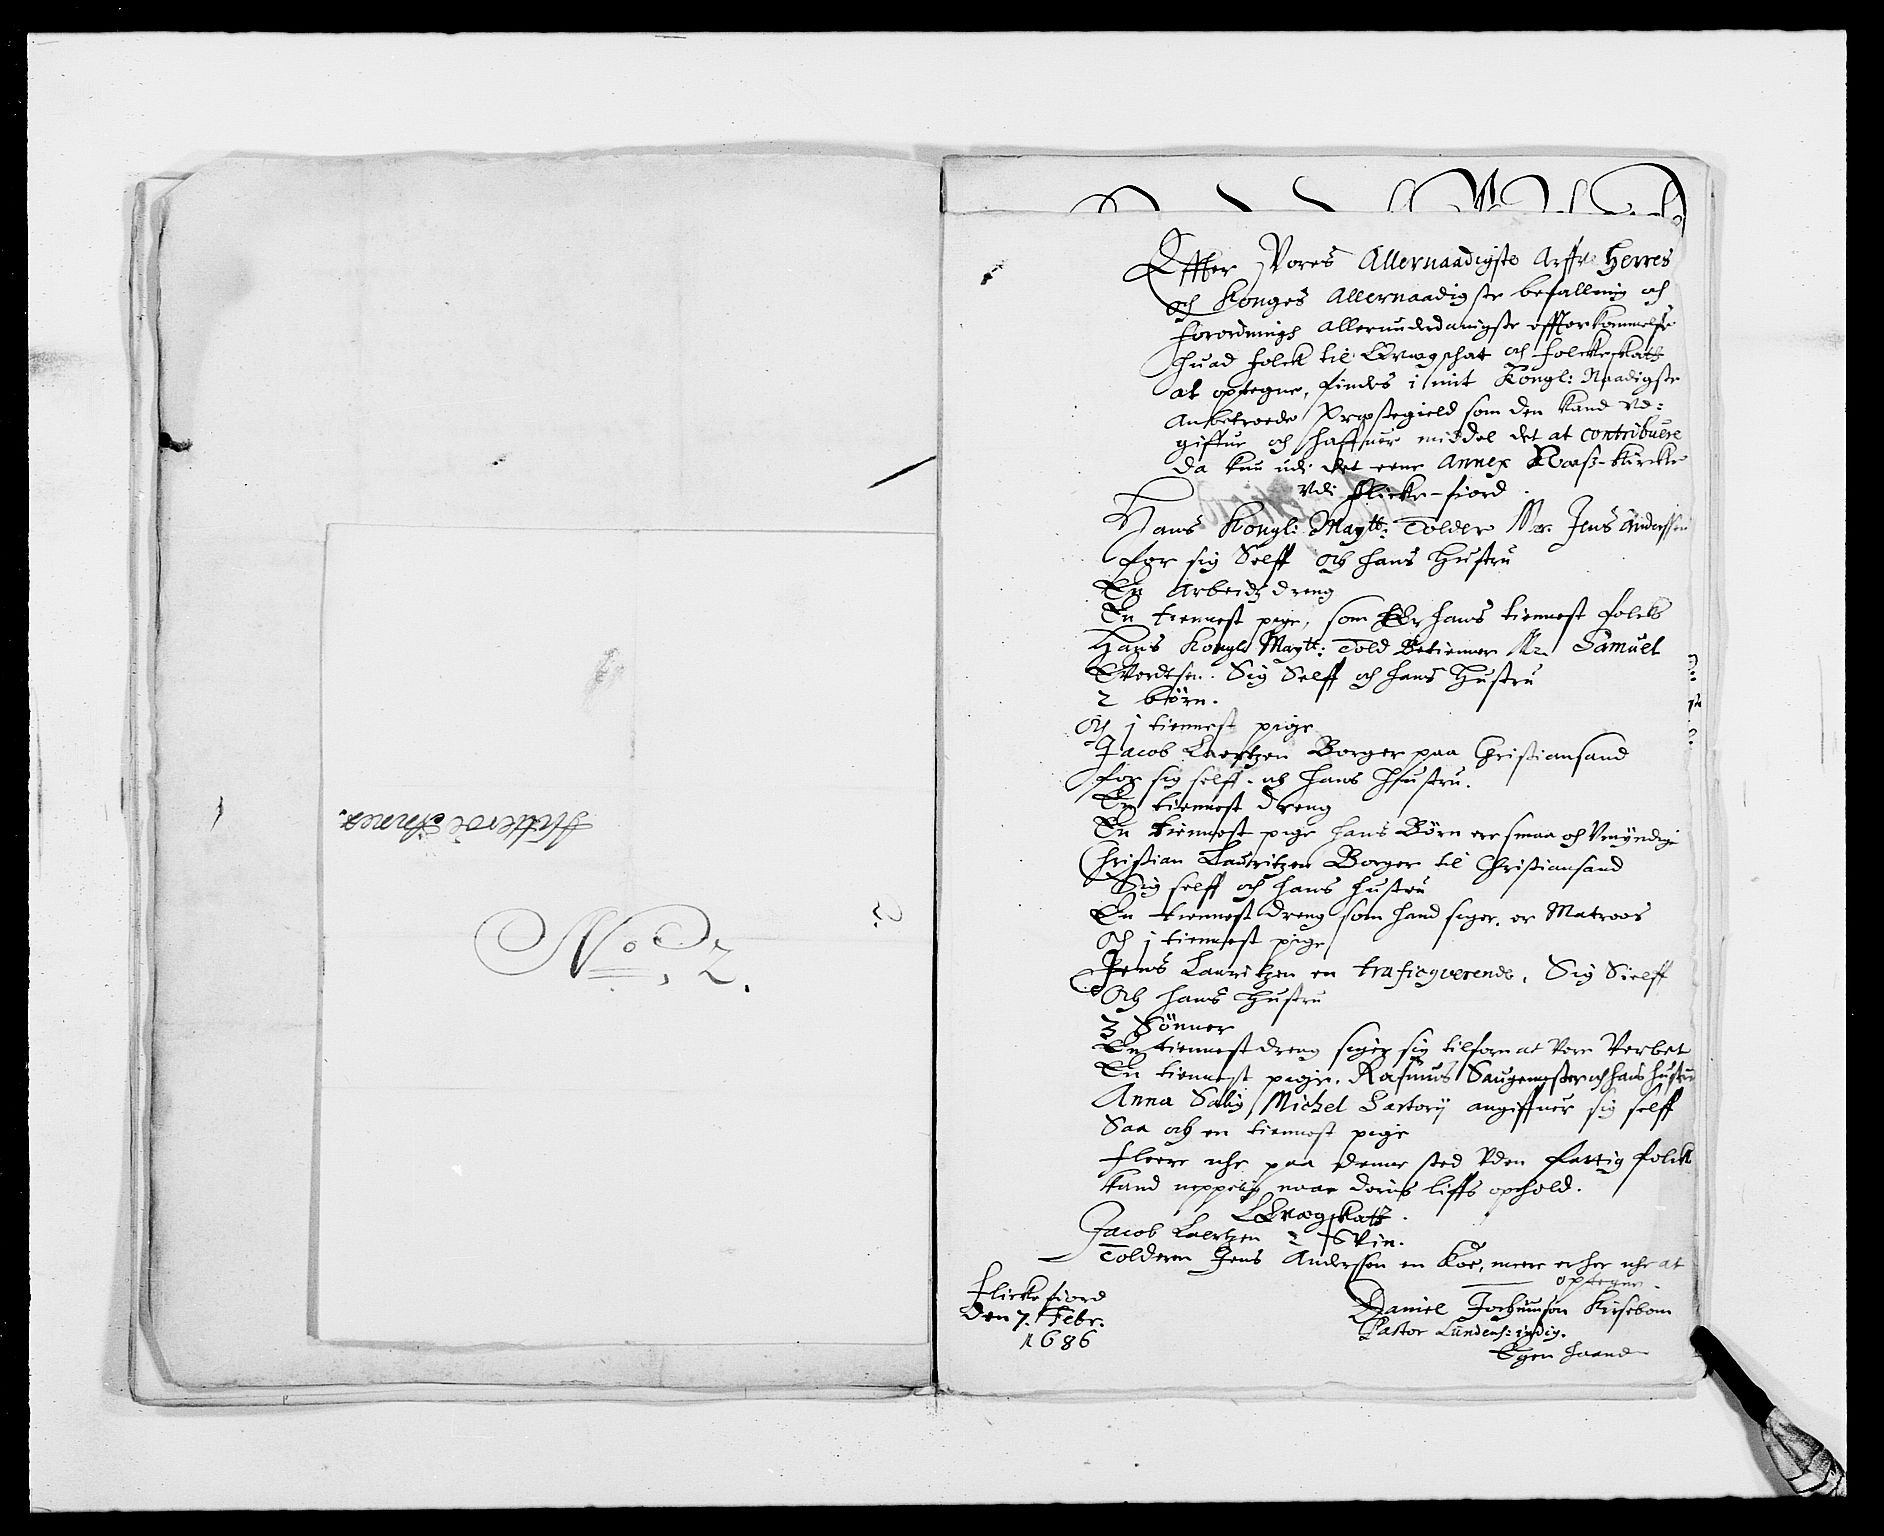 Hitterøe Annex.
No. 2.
Effter Vores Allernaadigste Arffve Herres
och Konges Allernaadigste befalling och
forordnings allerunderdanigste effterkommelse
huad folck til Qvægschat och folckeskatt
at optegne, findes i mit Kongl: Naadigste
Anbetroede Præstegield som den kand vd-
giffue och haffuer middel det at contribuere
da kun udi det eene Annex Næss-Kircke
Vdi Flicke-fiord.
Hans Kongl: Maytt: Tolder Mr. Jens Anderssen
for sig Selff och hans Hustru
En Arbeidz dreng
En tiennest pige, som er hans tiennest folck
Hans Kongl: Maytt: Told Betienner Mr. Samuel
Sig Selff och hans Hustru
2 børn.
Och 1 tiennest pige
Jacob Laertzen Borger paa Christiansand
for sig selff och hans Hustru.
En tiennest dreng
En tiennest pige hans Børn ere smaa och Vmyndige
Christian Lauritzen Borger til Christiansand
Sig selff och hans hustru
En tiennest dreng som hand siger er Matroos
Och 1 tiennest pige
Jens Lauritzen en traficqverende, Sig Sielff
Och hans Hustru
3 Sønner
En tiennest dreng siger sig tilforn at vere Verbet
En tiennest pige. Rasmus och hans hustru
Anna Salig Michel Sartorij angiffuer sig selff
Saa och en tiennest pige
Fleere ehr paa denne sted Vden fattig folck
kand neppelig naae deris liffs ophold.
Qvægskatt.
Jacob Laertzen 2 Svin.
Tolderen Jens Andersson en Koe, meere er her ehr at
optegne.
Flickefiord
Den 7. Febr.
1686
Daniel Jochumson Kirsebom
Pastor Lundens: indig.
Egen haand